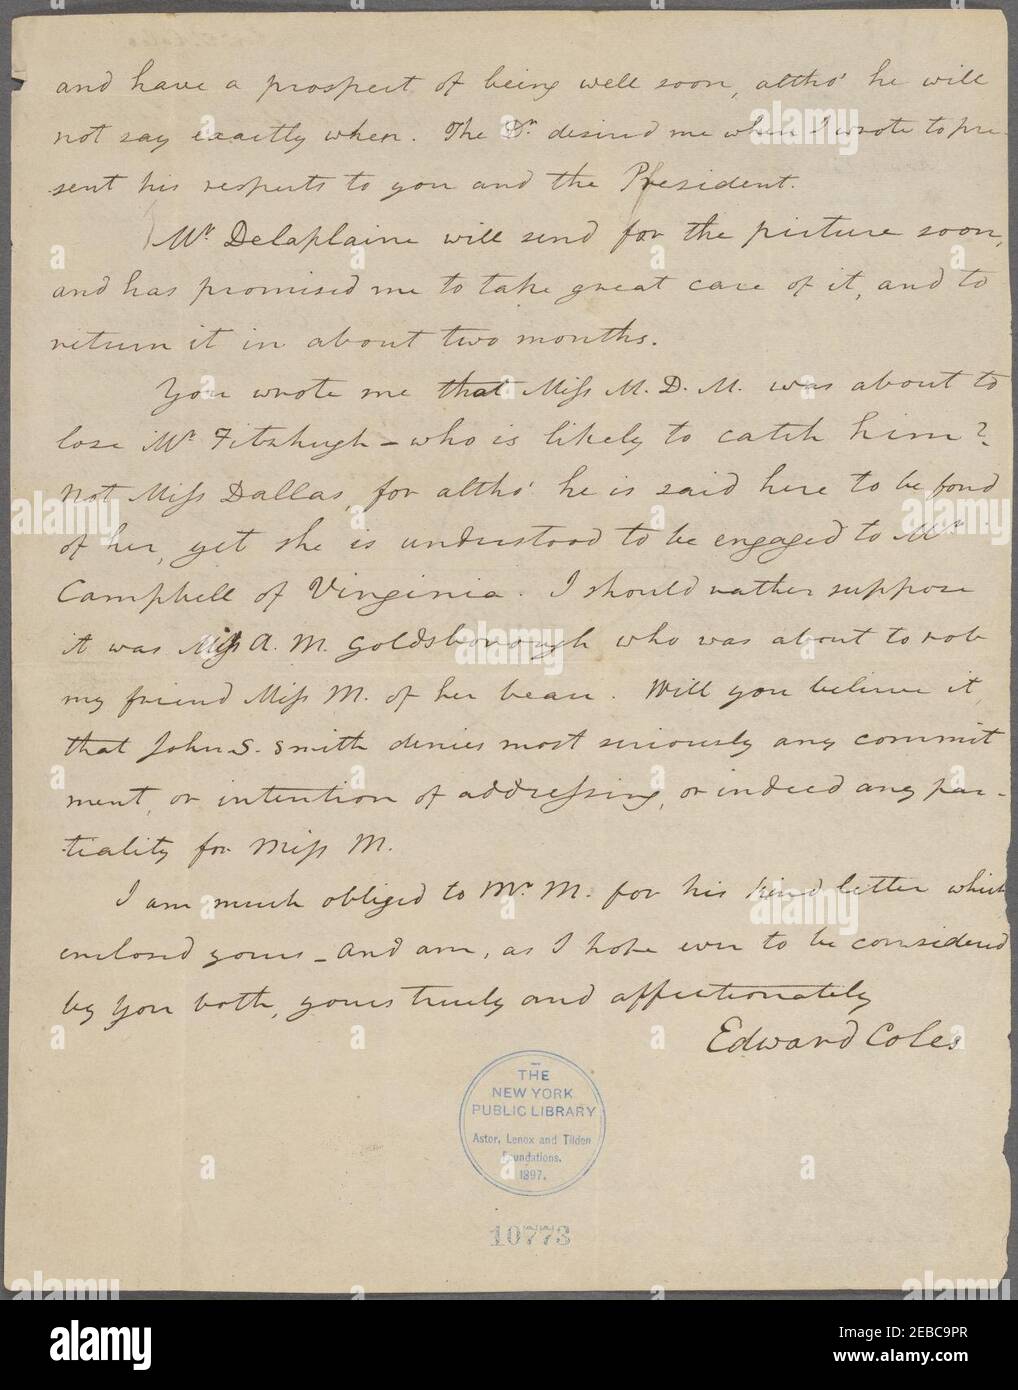 and have a prospect of being well soon, altho' he will
not say exactly when. The Dr. desired me when I wrote to pre-
sent his respects to you and the President.
Mr. Delaplaine will send for the picture soon,
and has promised me to take great care of it, and to
return it in about two months.
You wrote me that Miss M. D. M. was about to
lose Mr. Fitzhugh – who is likely to catch him?
Not Miss Dallas, for altho' he is said here to be fond
of her, yet she is understood to be engaged to Mr.
Campbell of Virginia. I should rather suppose
it was Miss A. M. Goldsborough who was about to rob
my friend Miss M. of her beau. Will you believe it,
that John S. Smith denies most seriously any commit
ment, or intention of addressing, or indeed any par-
tiality for Miss M.
I am much obliged to Mr. M. for his kind letter which
enclosed yours – and am, as I hope ever to be considered
by you both, yours truly and affectionately
Edward Coles
THE
NEW YORK
PUBLIC LIBRARY
Astor, Lenox and Tilden
Foundations.
1897.
10773
alamy
Image ID: 2EBC9PR
www.alamy.com